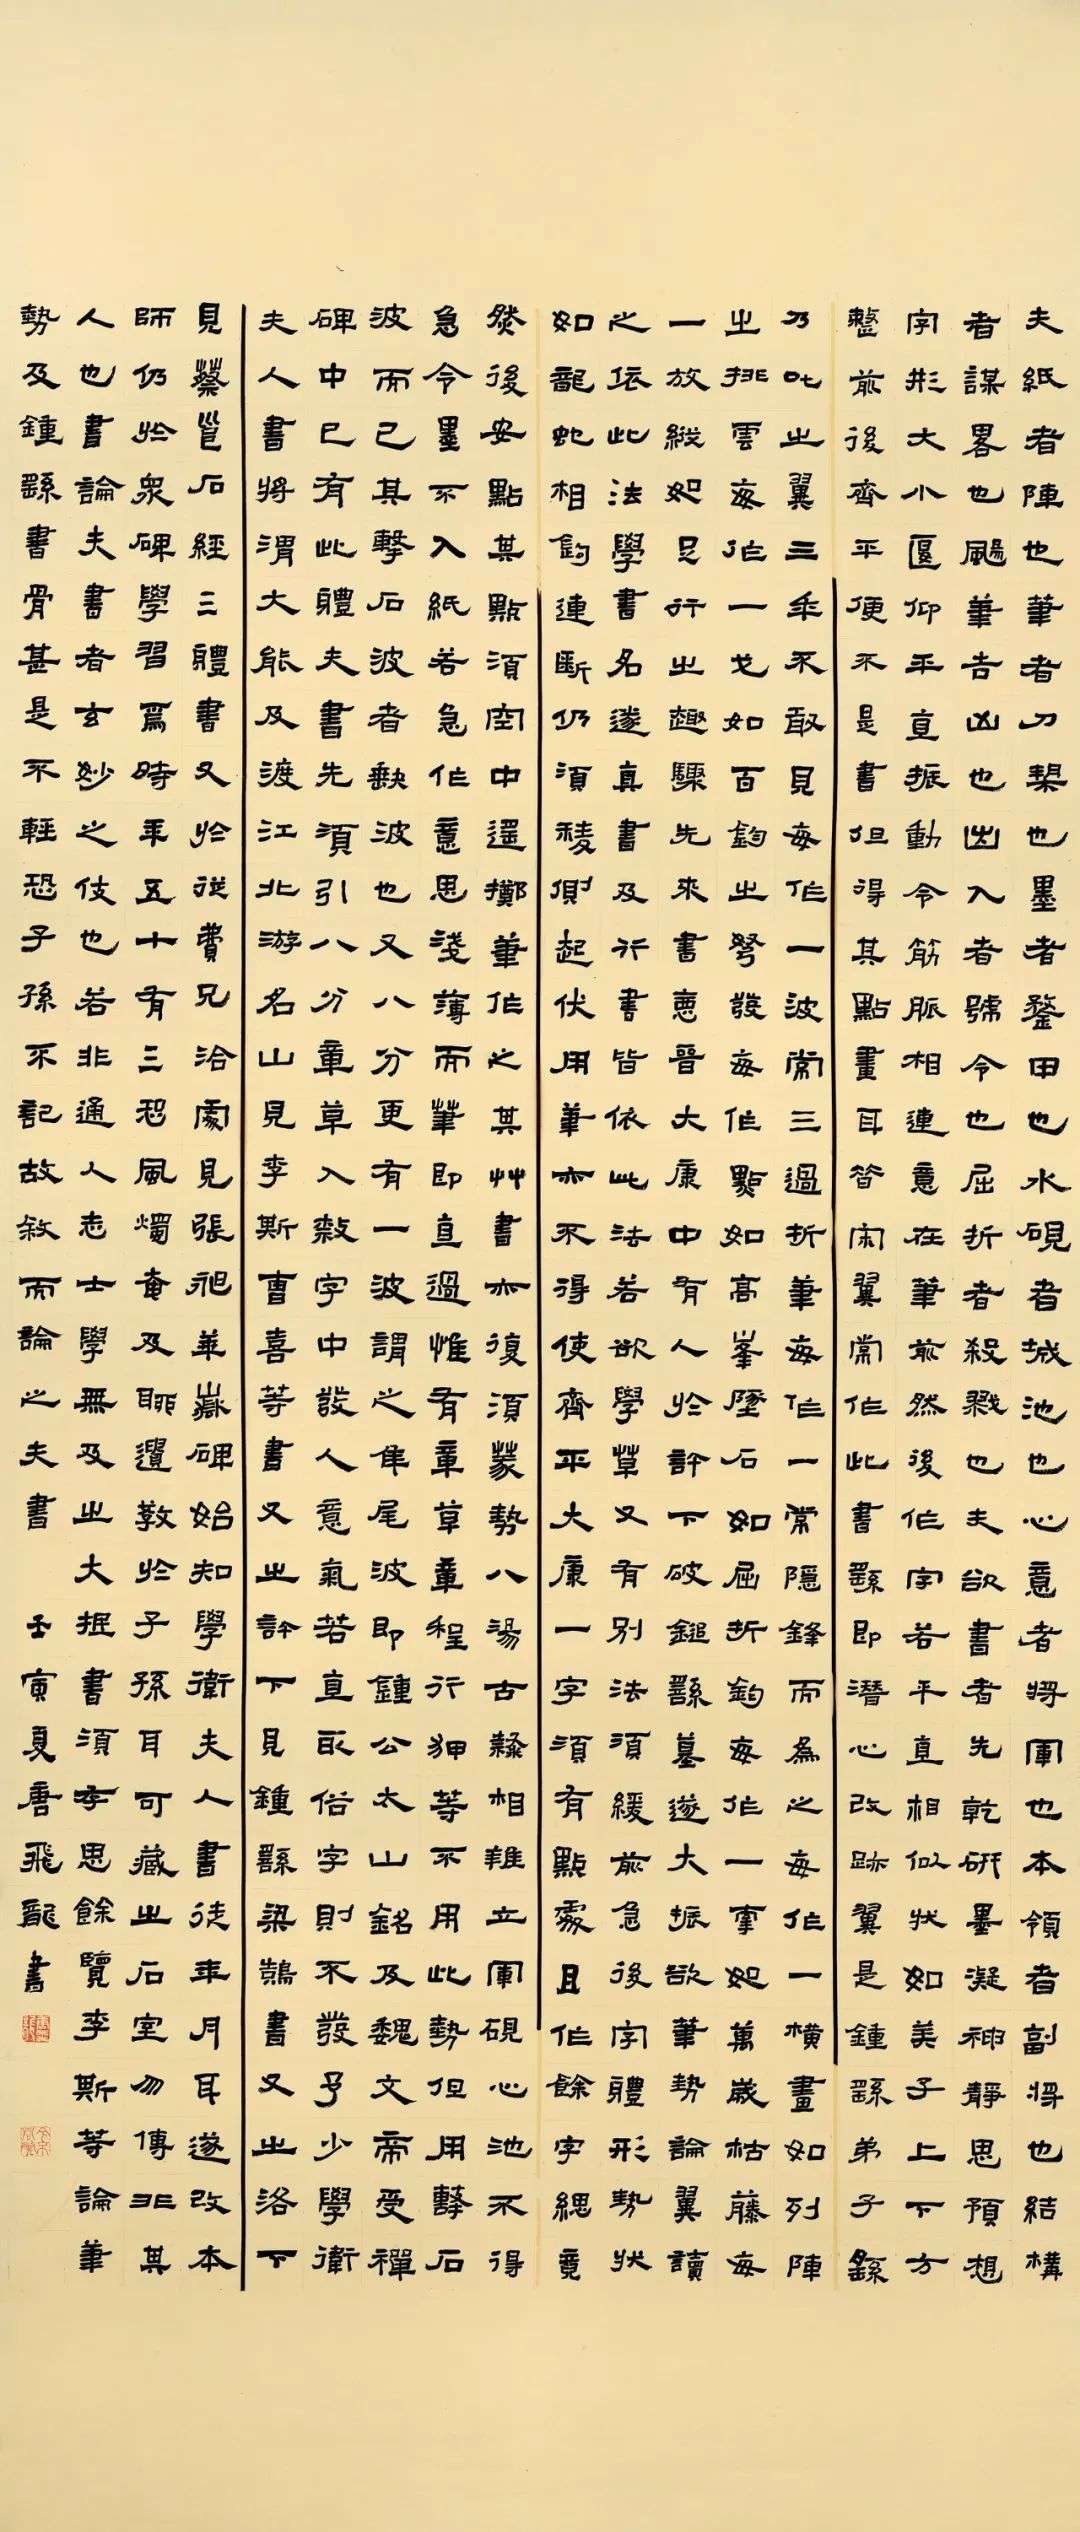 夫紙者陣也筆者刀槊也墨者鍪甲也水硯者城池也心意者將軍也本領者副將也結構
者謀畧也颺筆吉凶也出入者號令也屈折者殺戮也夫欲書者先乾研墨凝神靜思預想
字形大小偃仰平直振動令筋脈相連意在筆前然後作字若平直相似狀如美子上下方
整前後齊平便不是書但得其點畫耳昔宋翼常作此書繇即潛心改跡翼是鍾繇弟子繇
乃叱之翼三年不敢見每作一波常三過折筆每作一常隱鋒而為之每作一橫畫如列陣
之排雲每作一戈如百鈞之弩發每作點如高峯墜石如屈折鈎每作一牽如萬歲枯藤每
一放縱如足行之趣驟先來書惡晉大康中有人於許下破鍾繇墓遂大振欲筆勢論翼讀
之依此法學書名遂真書及行書皆依此法若欲學草又有別法須緩前急後字體形勢狀
如龍蛇相鉤連斷仍須稜側起伏用筆亦不得使齊平大康一字須有點處且作餘字緦竟
然後安點其點須空中遥擲筆作之其艸書亦復須篆勢八湯古隸相雜立軍硯心池不得
急令墨不入紙若急作意思淺薄而筆即直過惟有章草章程行狎等不用此勢但用擊石
波而已其擊石波者缺波也又八分更有一波謂之隼尾波即鍾公太山銘及魏文帝受禪
碑中已有此體夫書先須引八分章草入隸字中發人意氣若直取俗字則不發予少學衛
夫人書將謂大能及渡江北游名山見李斯曹喜等書又之許下見鍾繇梁鵠書又之洛下
見蔡邕石經三體書又於從費兄洽處見張昶華嶽碑始知學衛夫人書徒年月耳遂改本
師仍於衆碑學習爲時年五十有三恐風燭奄及聊遺教於子孫耳可藏之石室勿傳非其
人也書論夫書者玄妙之伎也若非通人志士學無及之大抵書須存思餘覽李斯等論筆
勢及鍾繇書骨甚是不輕恐子孫不記故敘而論之夫書 壬寅夏唐飛龍書